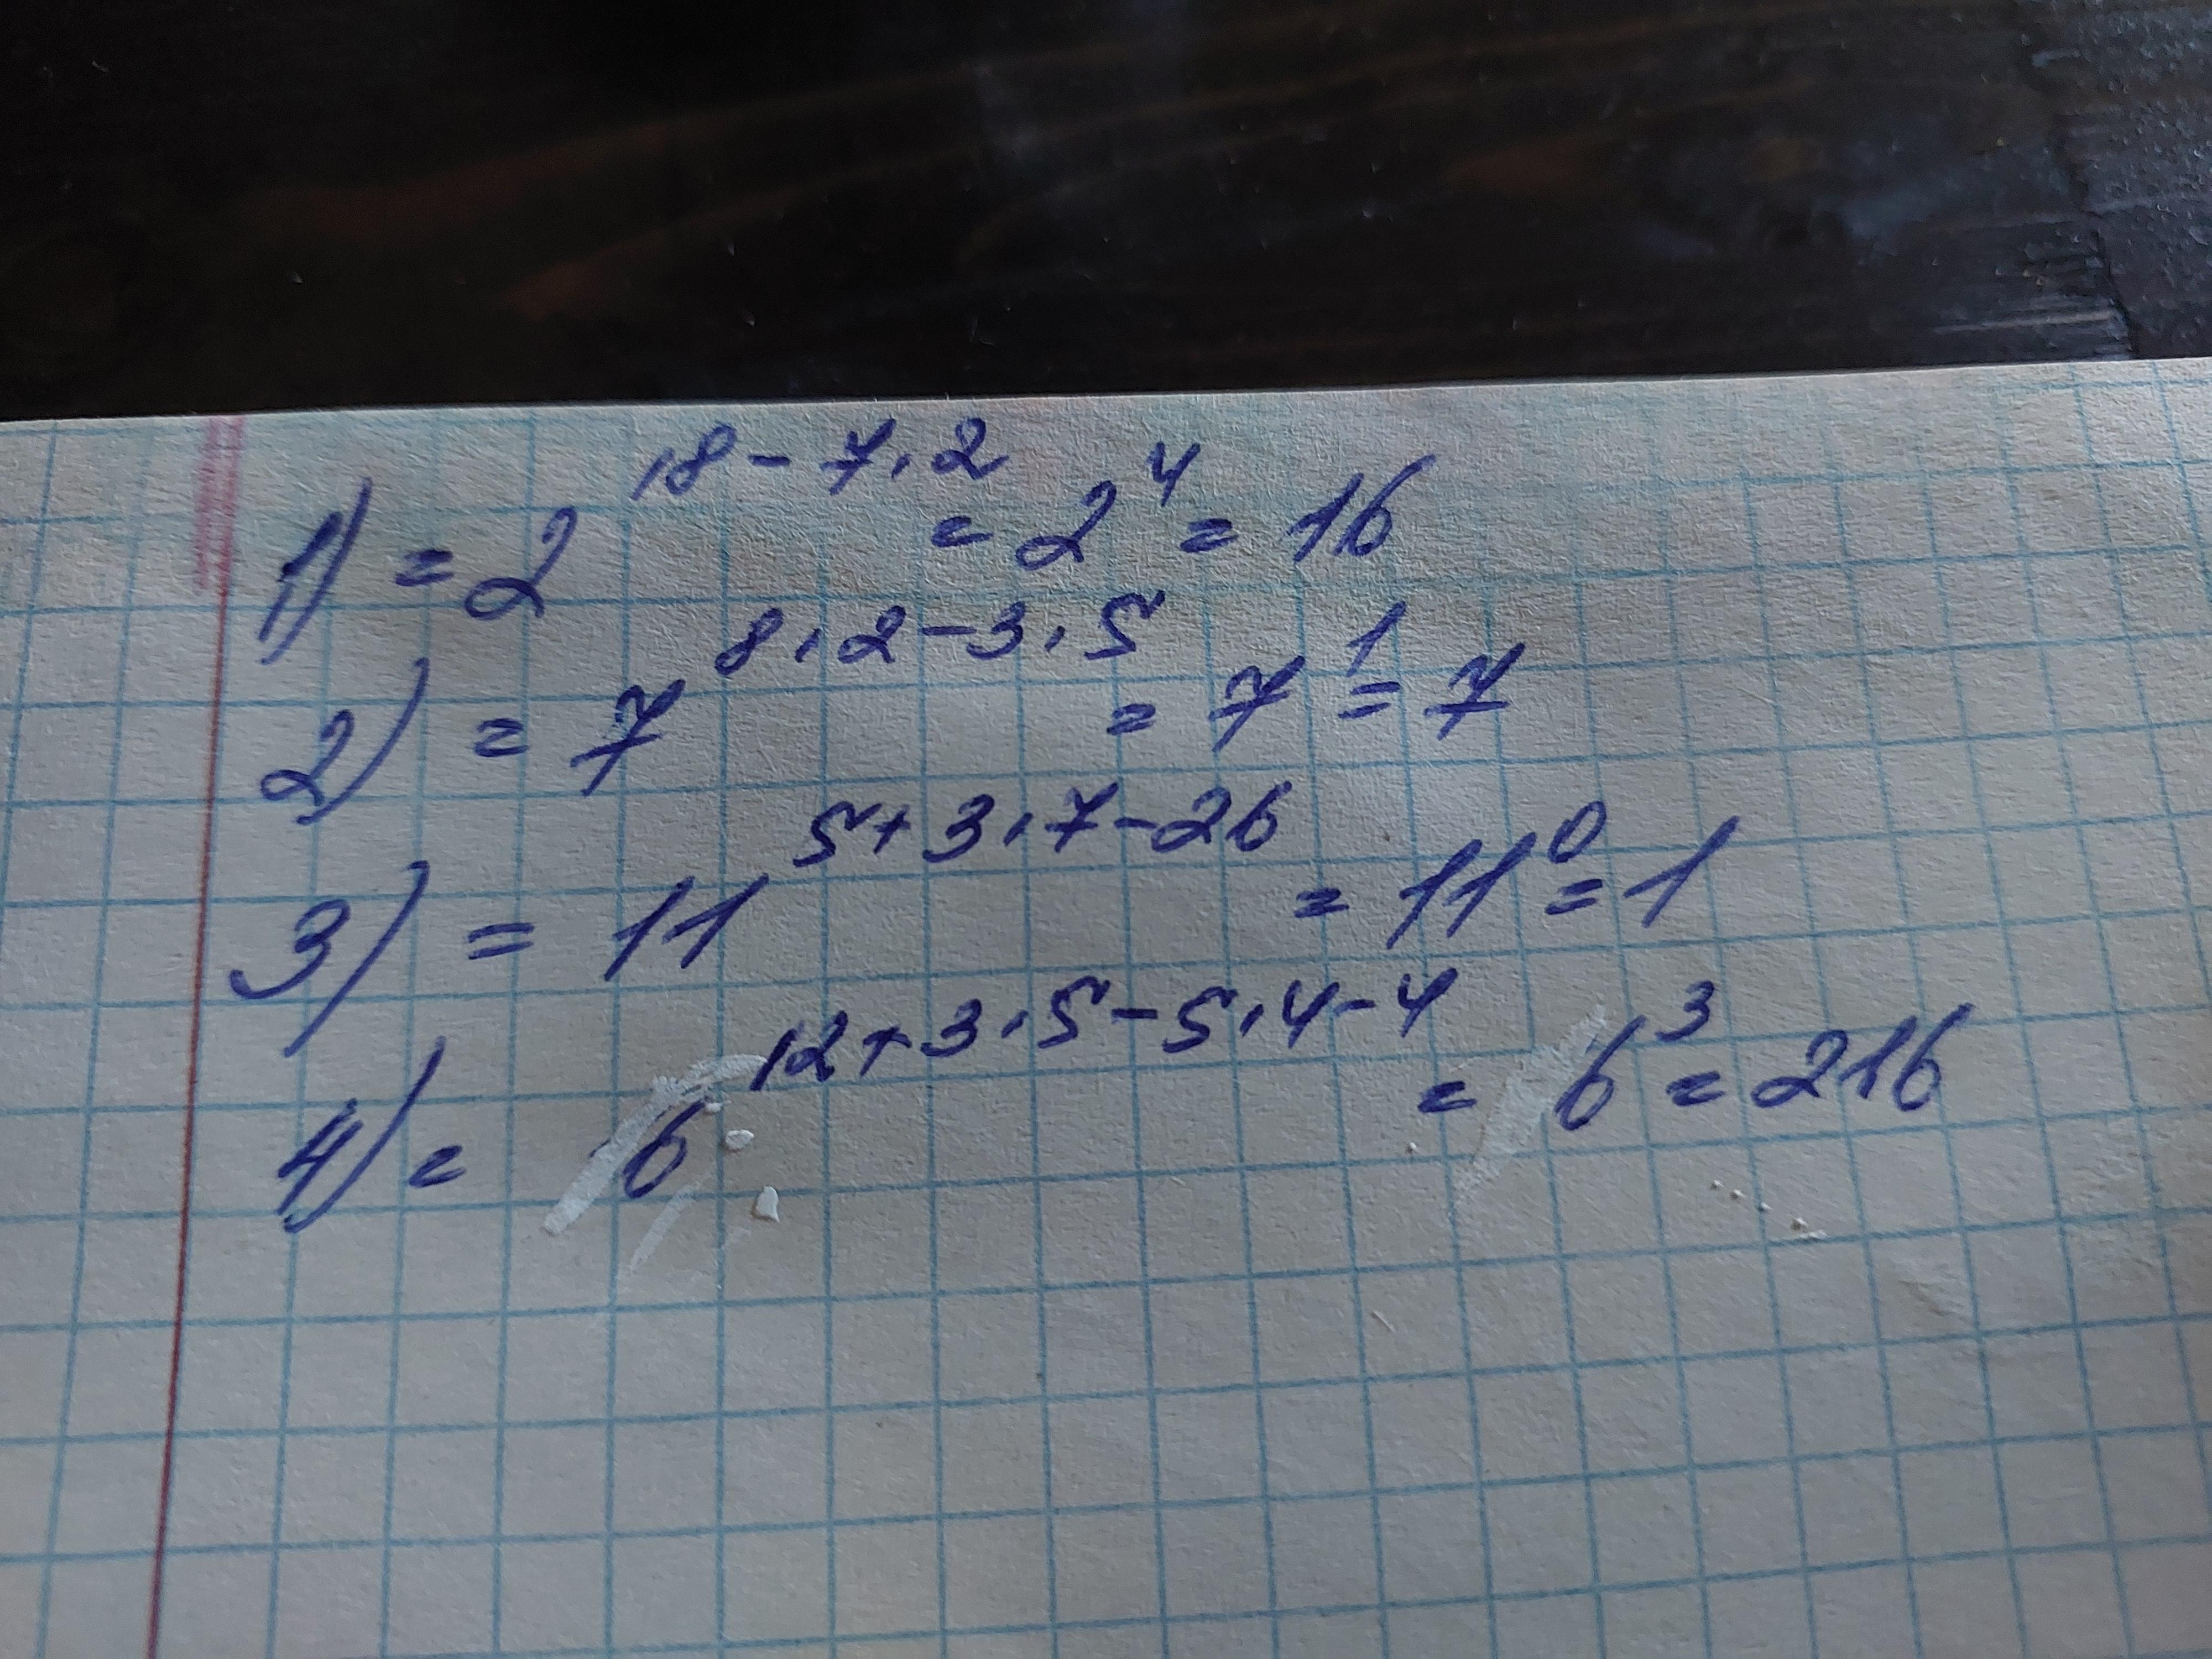 1) = 2^{18-7·2} = 2^4 = 16
2) = 7^{8·2-3·5} = 7^1 = 7
3) = 11^{5+3·7-26} = 11^0 = 1
4) = 6^{12+3·5-5·4-4} = 6^3 = 216